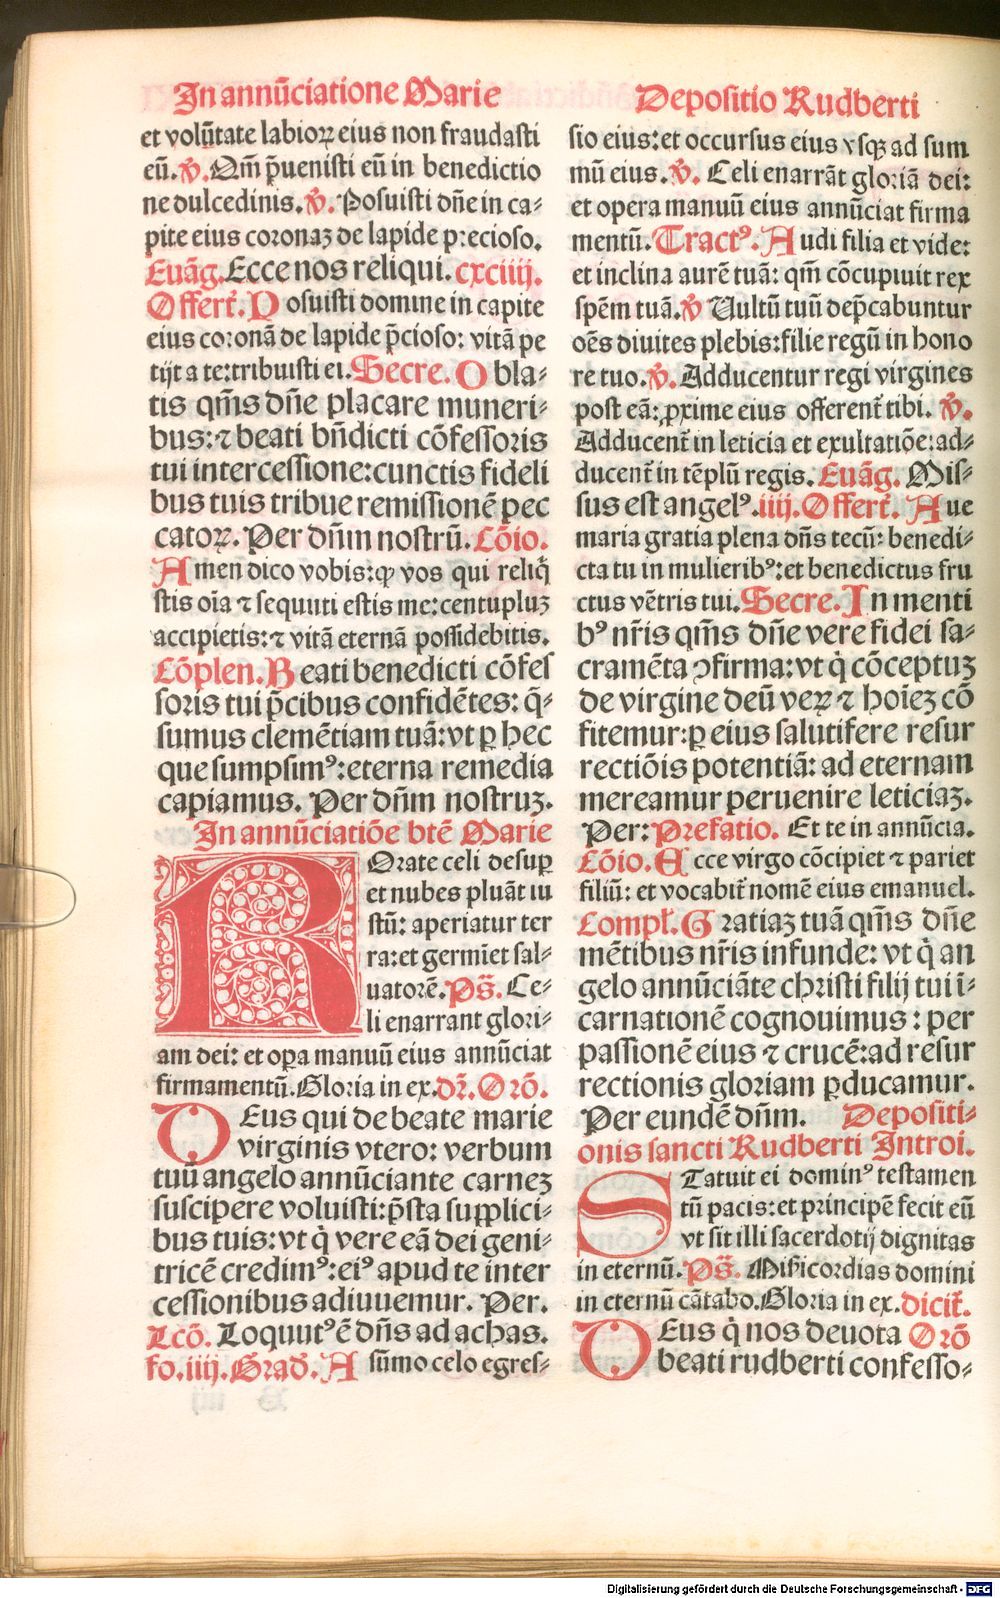 In annūciatione Marie
et volūtate labioꝝ eius non fraudasti
eū. ℣. Qm̄ p̄uenisti eū in benedictio
ne dulcedinis. ℣. Posuisti dn̄e in ca⸗
pite eius coronaʒ de lapide p:ecioso.
Euāg. Ecce nos reliqui. cxciiij.
Offert̄. Posuisti domine in capite
eius coronā de lapide p̄cioso: vitā pe
tijt a te: tribuisti ei. Secre. Obla⸗
tis qm̄s dn̄e placare muneri⸗
bus: ⁊ beati bn̄dicti cōfessoris
tui intercessione: cunctis fideli
bus tuis tribue remissionē pec
catoꝝ. Per dn̄m nostrū. Cōio.
Amen dico vobis: ꝙ vos qui reliq̄
stis oīa ⁊ sequuti estis me: centupluʒ
accipietis: ⁊ vitā eternā possidebitis.
Cōplen. Beati benedicti cōfes
soris tui p̄cibus confidētes: q̄⸗
sumus clemētiam tuā: vt ꝑ hec
que sumpsimꝰ: eterna remedia
capiamus. Per dn̄m nostruʒ.
In annūciatiōe btē Marie
ROrate celi desuꝑ
et nubes pluāt iu
stū: aperiatur ter
ra: et germīet sal⸗
uatorē. Ps̄. Ce⸗
li enarrant glori⸗
am dei: et oꝑa manuū eius annūciat
firmamentū. Gloria in ex. dr̄. Orō.
DEus qui de beate marie
virginis vtero: verbum
tuū angelo annūciante carneʒ
suscipere voluisti: p̄sta supplici⸗
bus tuis: vt q̄ vere eā dei geni⸗
tricē credimꝰ: eiꝰ apud te inter
cessionibus adiuuemur. Per.
Lcō. Loquutꝰ ē dn̄s ad achas.
fo. iiij. Grad̄. A sūmo celo egres⸗
Depositio Rudberti
sio eius: et occursus eius vsqꝫ ad sum
mū eius. ℣. Celi enarrāt gloriā dei:
et opera manuū eius annūciat firma
mentū. Tractꝰ. Audi filia et vide:
et inclina aurē tuā: qm̄ cōcupiuit rex
spēm tuā. ℣ Vultū tuū dep̄cabuntur
oēs diuites plebis: filie regū in hono
re tuo. ℣. Adducentur regi virgines
post eā: ꝓxime eius offerent̄ tibi. ℣.
Adducent̄ in leticia et exultatiōe: ad⸗
ducent̄ in tēplū regis. Euāg. Mis⸗
sus est angelꝰ. iiij. Offert̄. Aue
maria gratia plena dn̄s tecū: benedi⸗
cta tu in mulieribꝰ: et benedictus fru
ctus vētris tui. Secre. In menti
bꝰ nr̄is qm̄s dn̄e vere fidei sa⸗
cramēta ꝯfirma: vt q̄ cōceptuʒ
de virgine deū veꝝ ⁊ hoīeʒ cō
fitemur: ꝑ eius salutifere resur
rectiōis potentiā: ad eternam
mereamur peruenire leticiaʒ.
Per: Prefatio. Et te in annūcia.
Cōio. Ecce virgo cōcipiet ⁊ pariet
filiū: et vocabit̄ nomē eius emanuel.
Compl̄. Gratiaʒ tuā qm̄s dn̄e
mētibus nr̄is infunde: vt q̄ an
gelo annūciāte christi filij tui i⸗
carnationē cognouimus: per
passionē eius ⁊ crucē: ad resur
rectionis gloriam ꝑducamur.
Per eundē dn̄m. Depositi⸗
ōnis sancti Rudberti Introi.
STatuit ei dominꝰ testamen
tū pacis: et principē fecit eū
vt sit illi sacerdotij dignitas
in eternū. Ps̄. Mis̄icordias domini
in eternū cātabo. Gloria in ex. dicit̄.
DEus q̄ nos deuota Orō
beati rudberti confesso⸗
Digitalisierung gefördert durch die Deutsche Forschungsgemeinschaft - DFG